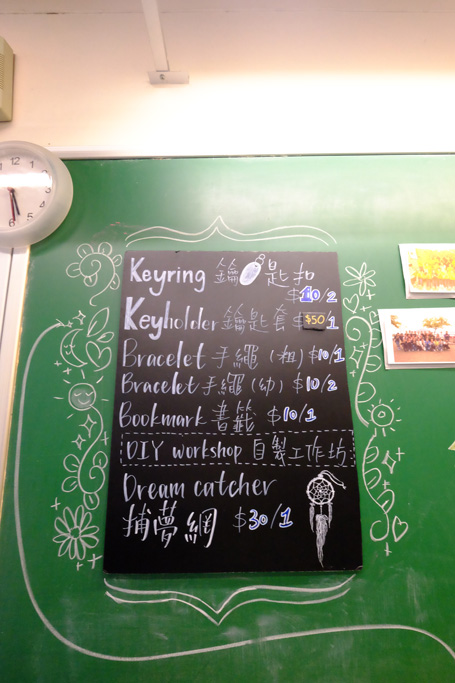 Keyring 鑰匙扣
$10/2
Keyholder 鑰匙套 $50/1
Bracelet 手繩 (粗) $10/1
Bracelet 手繩 (幼) $10/2
Bookmark 書籤 $10/1
DIY workshop 自製工作坊
Dream catcher
捕夢網 $30/1